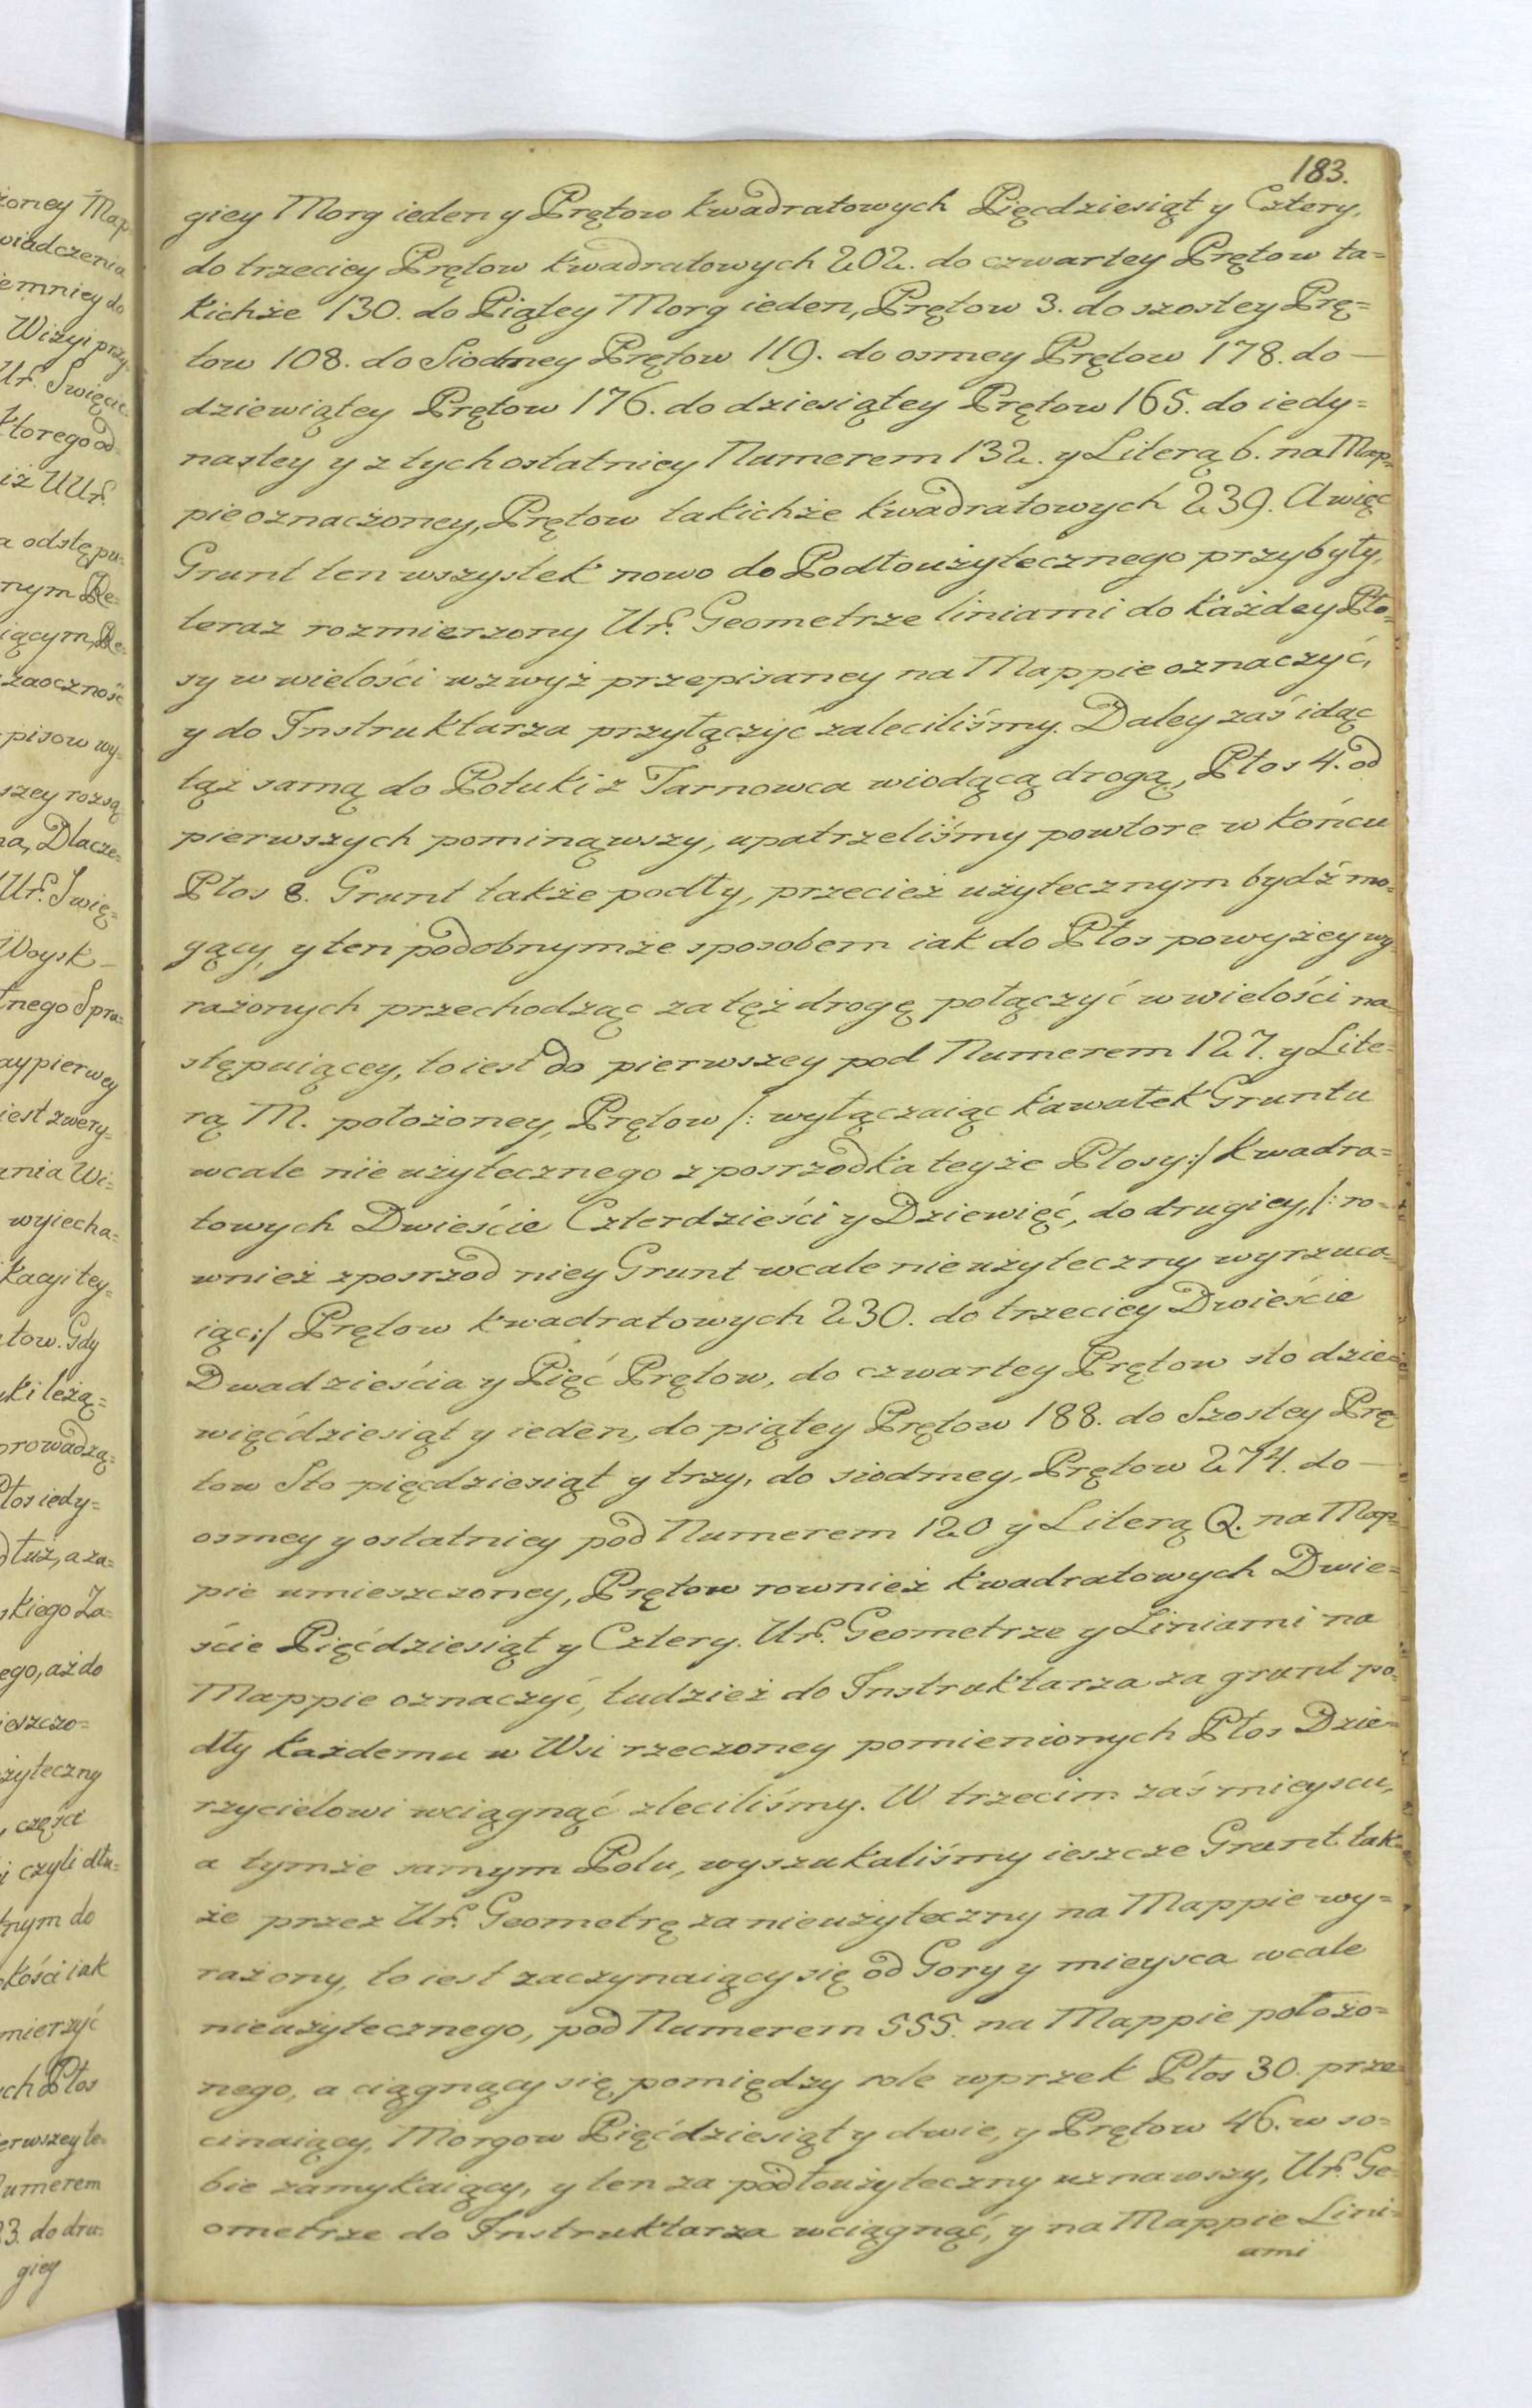 żoney Map
wiadczenia
emniey do
Wizyi przy
Ur. Swięcic
ktorego od
iż UUr.
a odstępu=
nym De=
iącym, De=
zaoczność
pisow wy=
szey rozsą
na, Dlacze=
Ur. Swię=
Woysk –
nego Spra=
aypierwey
iest zwery=
ania Wi=
wyiecha=
kacyi tey=
tow. Gdy
ki leżą=
prowadzą=
Płos iedy=
dłuż, a za=
skiego Za=
ego, aż do
ieszczo=
żyteczny
, części
i czyli dłu=
nym do
kości iak
mierzyć
ych Płos
erwszey te=
Numerem
3. do dru=
giey
183.
giey Morg ieden y Prętow kwadratowych Pięcdziesiąt y Cztery,
do trzeciey Prętow kwadratowych 202. do czwartey Prętow ta=
kichże 130. do Piątey Morg ieden, Prętow 3. do szostey Prę=
tow 108. do Siodmey Prętow 119. do osmey Prętow 178. do –
dziewiątey Prętow 176. do dziesiątey Prętow 165. do iedy=
nastey y z tych ostatniey Numerem 132. y Literą b. na Map=
pie oznaczoney, Prętow takichże kwadratowych 239. A więc
Grunt ten wszystek nowo do Podłoużytecznego przybyły,
teraz rozmierzony Ur. Geometrze liniami do każdey Pło=
sy w wielości wzwyż przepisaney na Mappie oznaczyć,
y do Instruktarza przyłączyć zaleciliśmy. Daley zaś idąc
tąż samą do Połuki z Tarnowca wiodącą drogą, Płos 4. od
pierwszych pominąwszy, upatrzeliśmy powtore w końcu
Płos 8. Grunt także podły, przecież użytecznym bydź mo=
gący, y ten podobnymże sposobem iak do Płos powyżey wy=
rażonych przechodząc za tęż drogę połączyć w wielości na=
stępuiącey, to iest do pierwszey pod Numerem 127. y Lite=
rą M. położoney, Prętow /: wyłączaiąc kawałek Gruntu
wcale nie użytecznego z posrzodka teyże Płosy:/ kwadra=
towych Dwieście Czterdzieści y Dziewięć, do drugiey, /: ro=
wnież z posrzod niey Grunt wcale nie użyteczny wyrzuca=
iąc:/ Prętow kwadratowych 230. do trzeciey Dwieście
Dwadzieścia y Pięć Prętow, do czwartey Prętow sto dzie=
więćdziesiąt y ieden, do piątey Prętow 188. do Szostey Prę=
tow Sto pięcdziesiąt y trzy, do siodmey, Prętow 274. do –
osmey y ostatniey pod Numerem 120 y Literą Q. na Map=
pie umieszczoney, Prętow rownież kwadratowych Dwie=
ście Pięćdziesiąt y Cztery. Ur. Geometrze y Liniami na
Mappie oznaczyć, tudzież do Instruktarza za grunt po=
dły każdemu w Wsi rzeczoney pomienionych Płos Dzie=
rzycielowi wciągnąć zleciliśmy. W trzecim zaś mieyscu,
a tymże samym Polu, wyszukaliśmy ieszcze Grunt tak=
że przez Ur. Geometrę za nieużyteczny na Mappie wy=
rażony, to iest zaczynaiący się od Gory y mieysca wcale
nieużytecznego, pod Numerem SSS. na Mappie położo=
nego, a ciągnący się, pomiędzy role wprzek Płos 30. prze=
cinaiący, Morgow Pięćdziesiąt y dwie, y Prętow 46. w so=
bie zamykaiący, y ten za podłoużyteczny uznawszy, Ur. Ge=
ometrze do Instruktarza wciągnąć, y na Mappie Lini=
ami